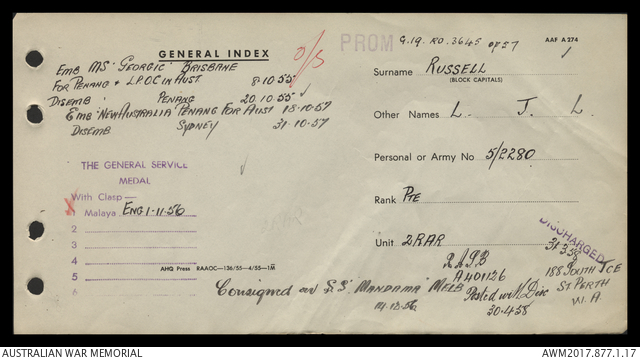 GENERAL INDEX
O/S
EMB MS 'GEORGIC' BRISBANE
FOR PENANG + L.P.O.C IN AUST. 8·10·55
DISEMB PENANG 20.10.55
EMB 'NEW AUSTRALIA' PENANG FOR AUST 18·10·57
DISEMB SYDNEY 31·10·57
THE GENERAL SERVICE
MEDAL
With Clasp—
1 Malaya ENG 1·11·56
2
3
4
5
6
2RAR
AHQ Press RAAOC—126/55—4/55—1M
PROM G.19. RO. 3645 of 57
AAF A 274
Surname RUSSELL
(BLOCK CAPITALS)
Other Names L. J. L.
Personal or Army No 5/2280
Rank PTE
Unit 2RAR
DISCHARGED
31·3·58
A401126
188 SOUTH TCE
ST PERTH
W.A.
Consigned on S.S. "Mandama" MELB
14·12·56
Posted w/l Disc
30·4·58
AUSTRALIAN WAR MEMORIAL
AWM2017.877.1.17